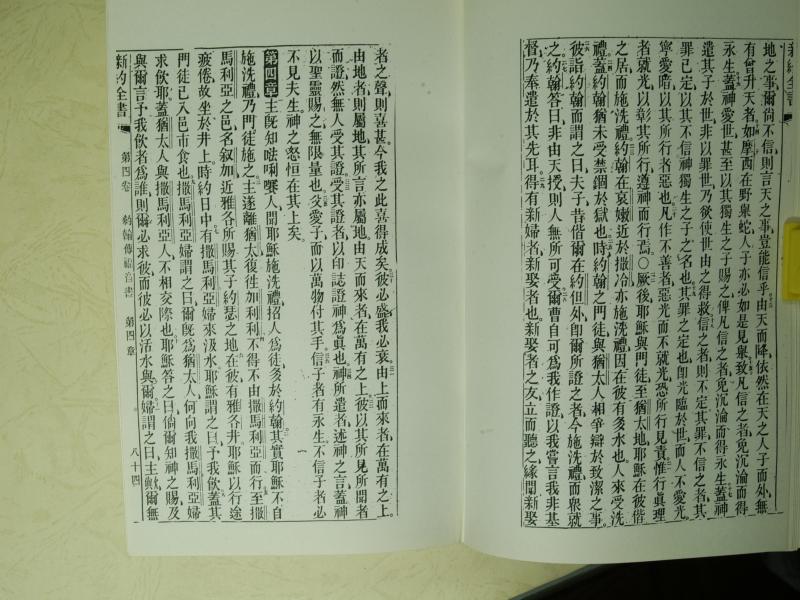 新約全書
地之事爾尙不信則言天之事豈能信乎由天而降依然在天之人子而外無
有曾升天者如摩西在野舉蛇人子亦必如是見舉致凡信之者免沉淪而得
永生蓋神愛世甚至以其獨生之子賜之俾凡信之者免沉淪而得永生蓋神
遣其子於世非以罪世乃欲使世由之得救信之者則不定其罪不信之者其
罪已定以其不信神獨生之子之名也其罪之定也卽光臨於世而人不愛光
寧愛暗以其所行者惡也凡作不善者惡光而不就光恐所行見責惟行眞理
者就光以彰其所行遵神而行焉〇厥後耶穌與門徒至猶太地耶穌在彼偕
之居而施洗禮約翰在哀嫩近於撒冷亦施洗禮因在彼有多水也人來受洗
禮蓋約翰猶未受禁錮於獄也時約翰之門徒與猶太人相爭辯於致潔之事
彼詣約翰而謂之曰夫子昔偕爾在約但外卽爾所證之者今施洗禮而衆就
之約翰答曰非由天授則人無所可受爾曹自可爲我作證以我嘗言我非基
督乃奉遣於其先耳得有新婦者新娶者也新娶者之友立而聽之緣聞新娶
者之聲則喜甚今我之此喜得成矣彼必盛我必衰由上而來者在萬有之上
由地者則屬地其所言亦屬地由天而來者在萬有之上彼以其所見所聞者
而證然無人受其證受其證者以印誌證神爲眞也神所遣者述神之言蓋神
以聖靈賜之無限量也父愛子而以萬物付其手信子者有永生不信子者必
不見夫生神之怒恒在其上矣
第四章主旣知𠵽唎㘔人聞耶穌施洗禮招人爲徒多於約翰其實耶穌不自
施洗禮乃門徒施之主遂離猶太復往加利利不得不由撒馬利亞而行至撒
馬利亞之邑名叙加近雅各所賜其子約瑟之地在彼有雅各井耶穌以行途
疲倦故坐於井上時約日中有撒馬利亞婦來汲水耶穌謂之曰予我飲蓋其
門徒已入邑市食也撒馬利亞婦謂之曰爾旣爲猶太人何向我撒馬利亞婦
求飲耶蓋猶太人與撒馬利亞人不相交際也耶穌答之曰倘爾知神之賜及
與爾言予我飲者爲誰則爾必求彼而彼必以活水與爾婦謂之曰主歟爾無
新約全書 第四卷 約翰傳福音書 第四章 八十四